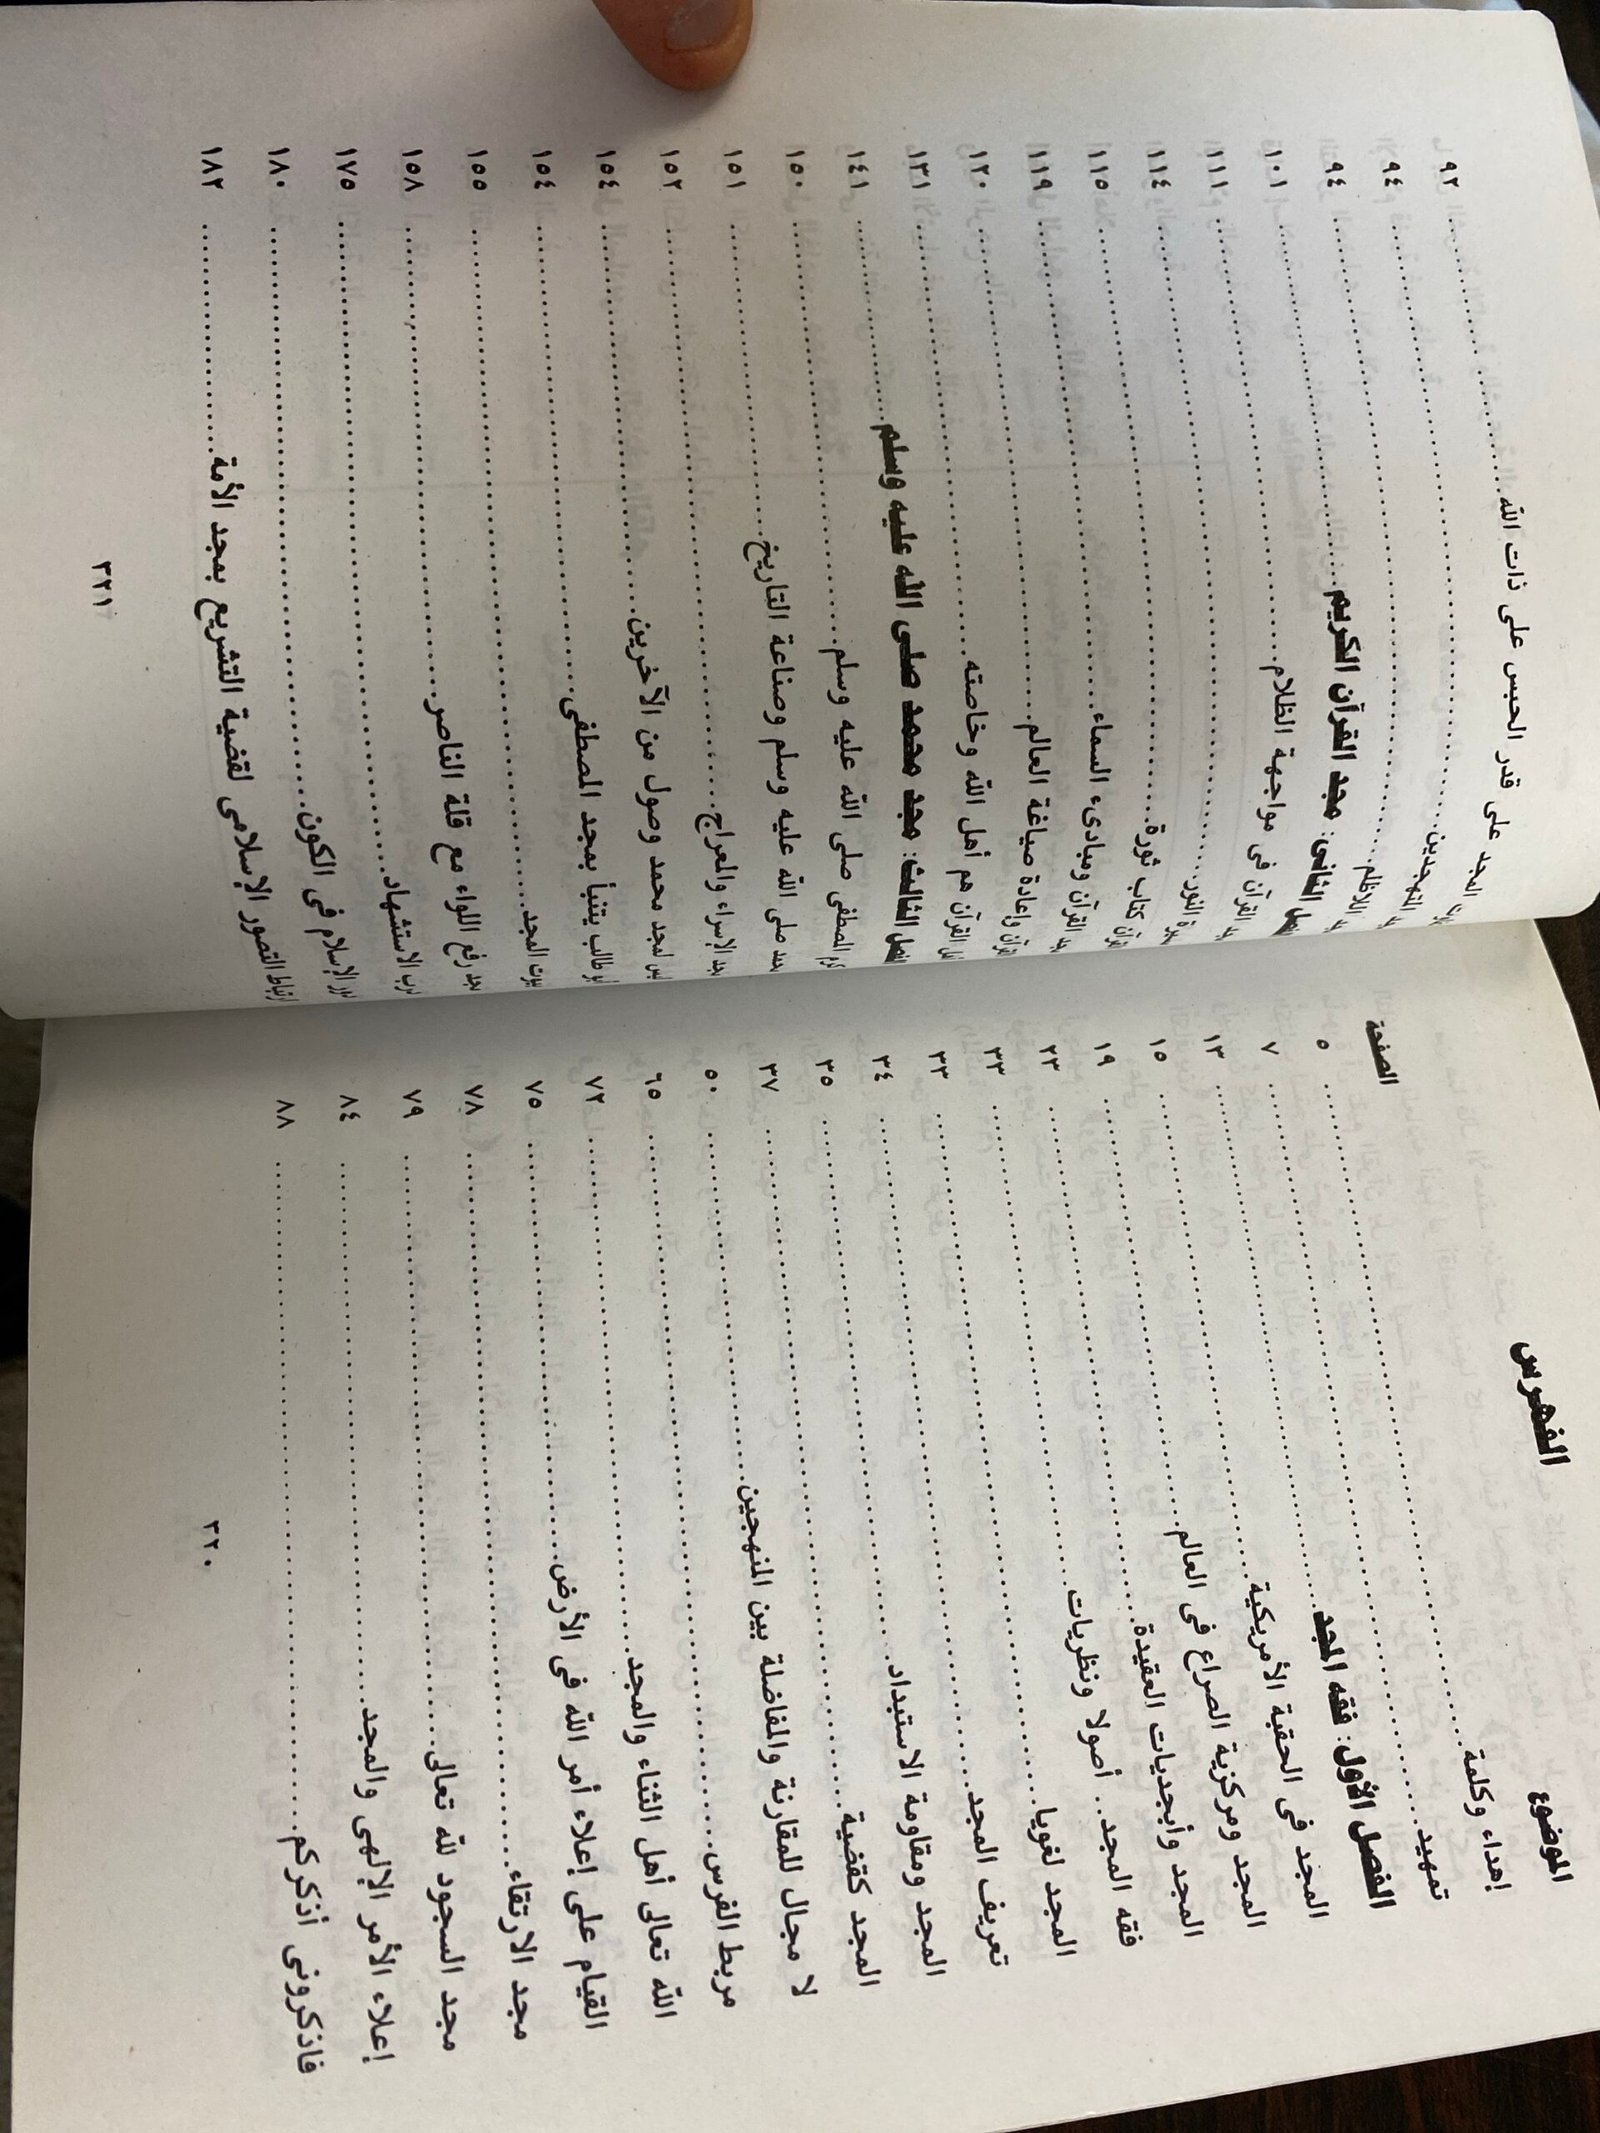 الفهرس
الموضوع الصفحة
إهداء وكلمة ٥
تمهيد ٧
الفصل الأول: فقه المجد ١٣
المجد فى الحقبة الأمريكية ١٥
المجد ومركزية الصراع فى العالم ١٩
المجد وأبجديات العقيدة ٢٣
فقه المجد.. أصولا ونظريات ٣٣
المجد لغويا ٣٣
تعريف المجد ٣٤
المجد ومقاومة الاستبداد ٣٥
المجد كقضية ٣٧
لا مجال للمقارنة والمفاضلة بين المنهجين ٥٠
مربط الفرس ٦٥
الله تعالى أهل الثناء والمجد ٧٢
القيام على إعلاء أمر الله فى الأرض ٧٥
مجد الارتقاء ٧٨
مجد السجود لله تعالى ٧٩
إعلاء الأمر الإلهى والمجد ٨٤
فاذكرونى أذكركم ٨٨
٣٢٠
المجد على قدر الحبس على ذات الله ٩٢
المتهجدين ٩٤
الفصل الثانى: مجد القرآن الكريم ١٠١
القرآن فى مواجهة الظلام ١١١
النور ١١٤
القرآن كتاب ثورة ١١٥
القرآن ومبادىء السماء ١١٩
القرآن وإعادة صياغة العالم ١٢٠
أهل القرآن هم أهل الله وخاصته ١٣١
الفصل الثالث: مجد محمد صلى الله عليه وسلم ١٤١
المصطفى صلى الله عليه وسلم ١٥٠
محمد صلى الله عليه وسلم وصناعة التاريخ ١٥١
مجد الإسراء والمعراج ١٥٢
ليس لمجد محمد وصول من الآخرين ١٥٤
أبو طالب يتنبأ بمجد المصطفى ١٥٤
بيوت المجد ١٥٥
مجد رفع اللواء مع قلة الناصر ١٥٨
الاستشهاد ١٧٥
الإسلام فى الكون ١٨٠
ارتباط التصور الإسلامى لقضية التشريع بمجد الأمة ١٨٢
٣٢١